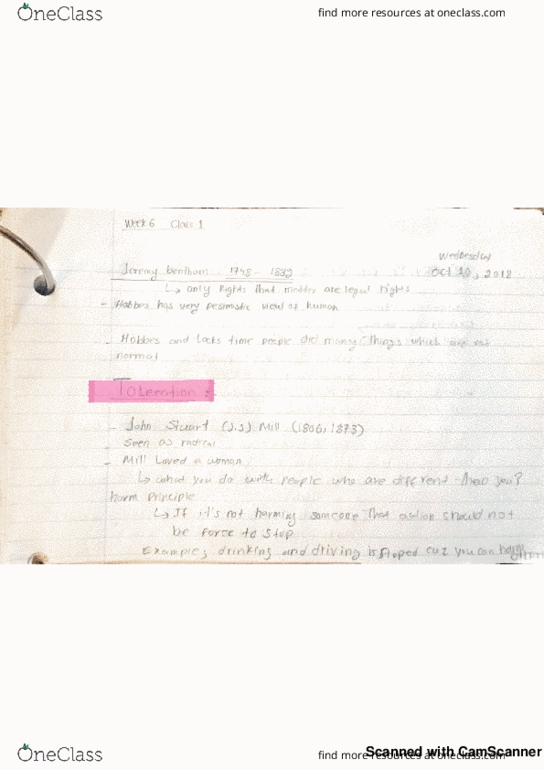 OneClass
find more resources at oneclass.com
Week 6 Class 1
Wednesday
Jeremy bentham 1748 - 1832
Oct 10, 2018
↳ only Rights that matter are legal rights
- Hobbes has very view of human
- Hobbes and Locks time people did many things which are not
normal
Toleration :
- John Stuart (J.S) Mill (1806, 1873)
Seen as radical
- Mill Loved a woman
↳ what you do with people who are different than you?
harm Principle
↳ If it's not harming someone that action should not
be force to stop
Examples, drinking and driving is cuz you can
OneClass
find more resources at oneclass.com
Scanned with CamScanner